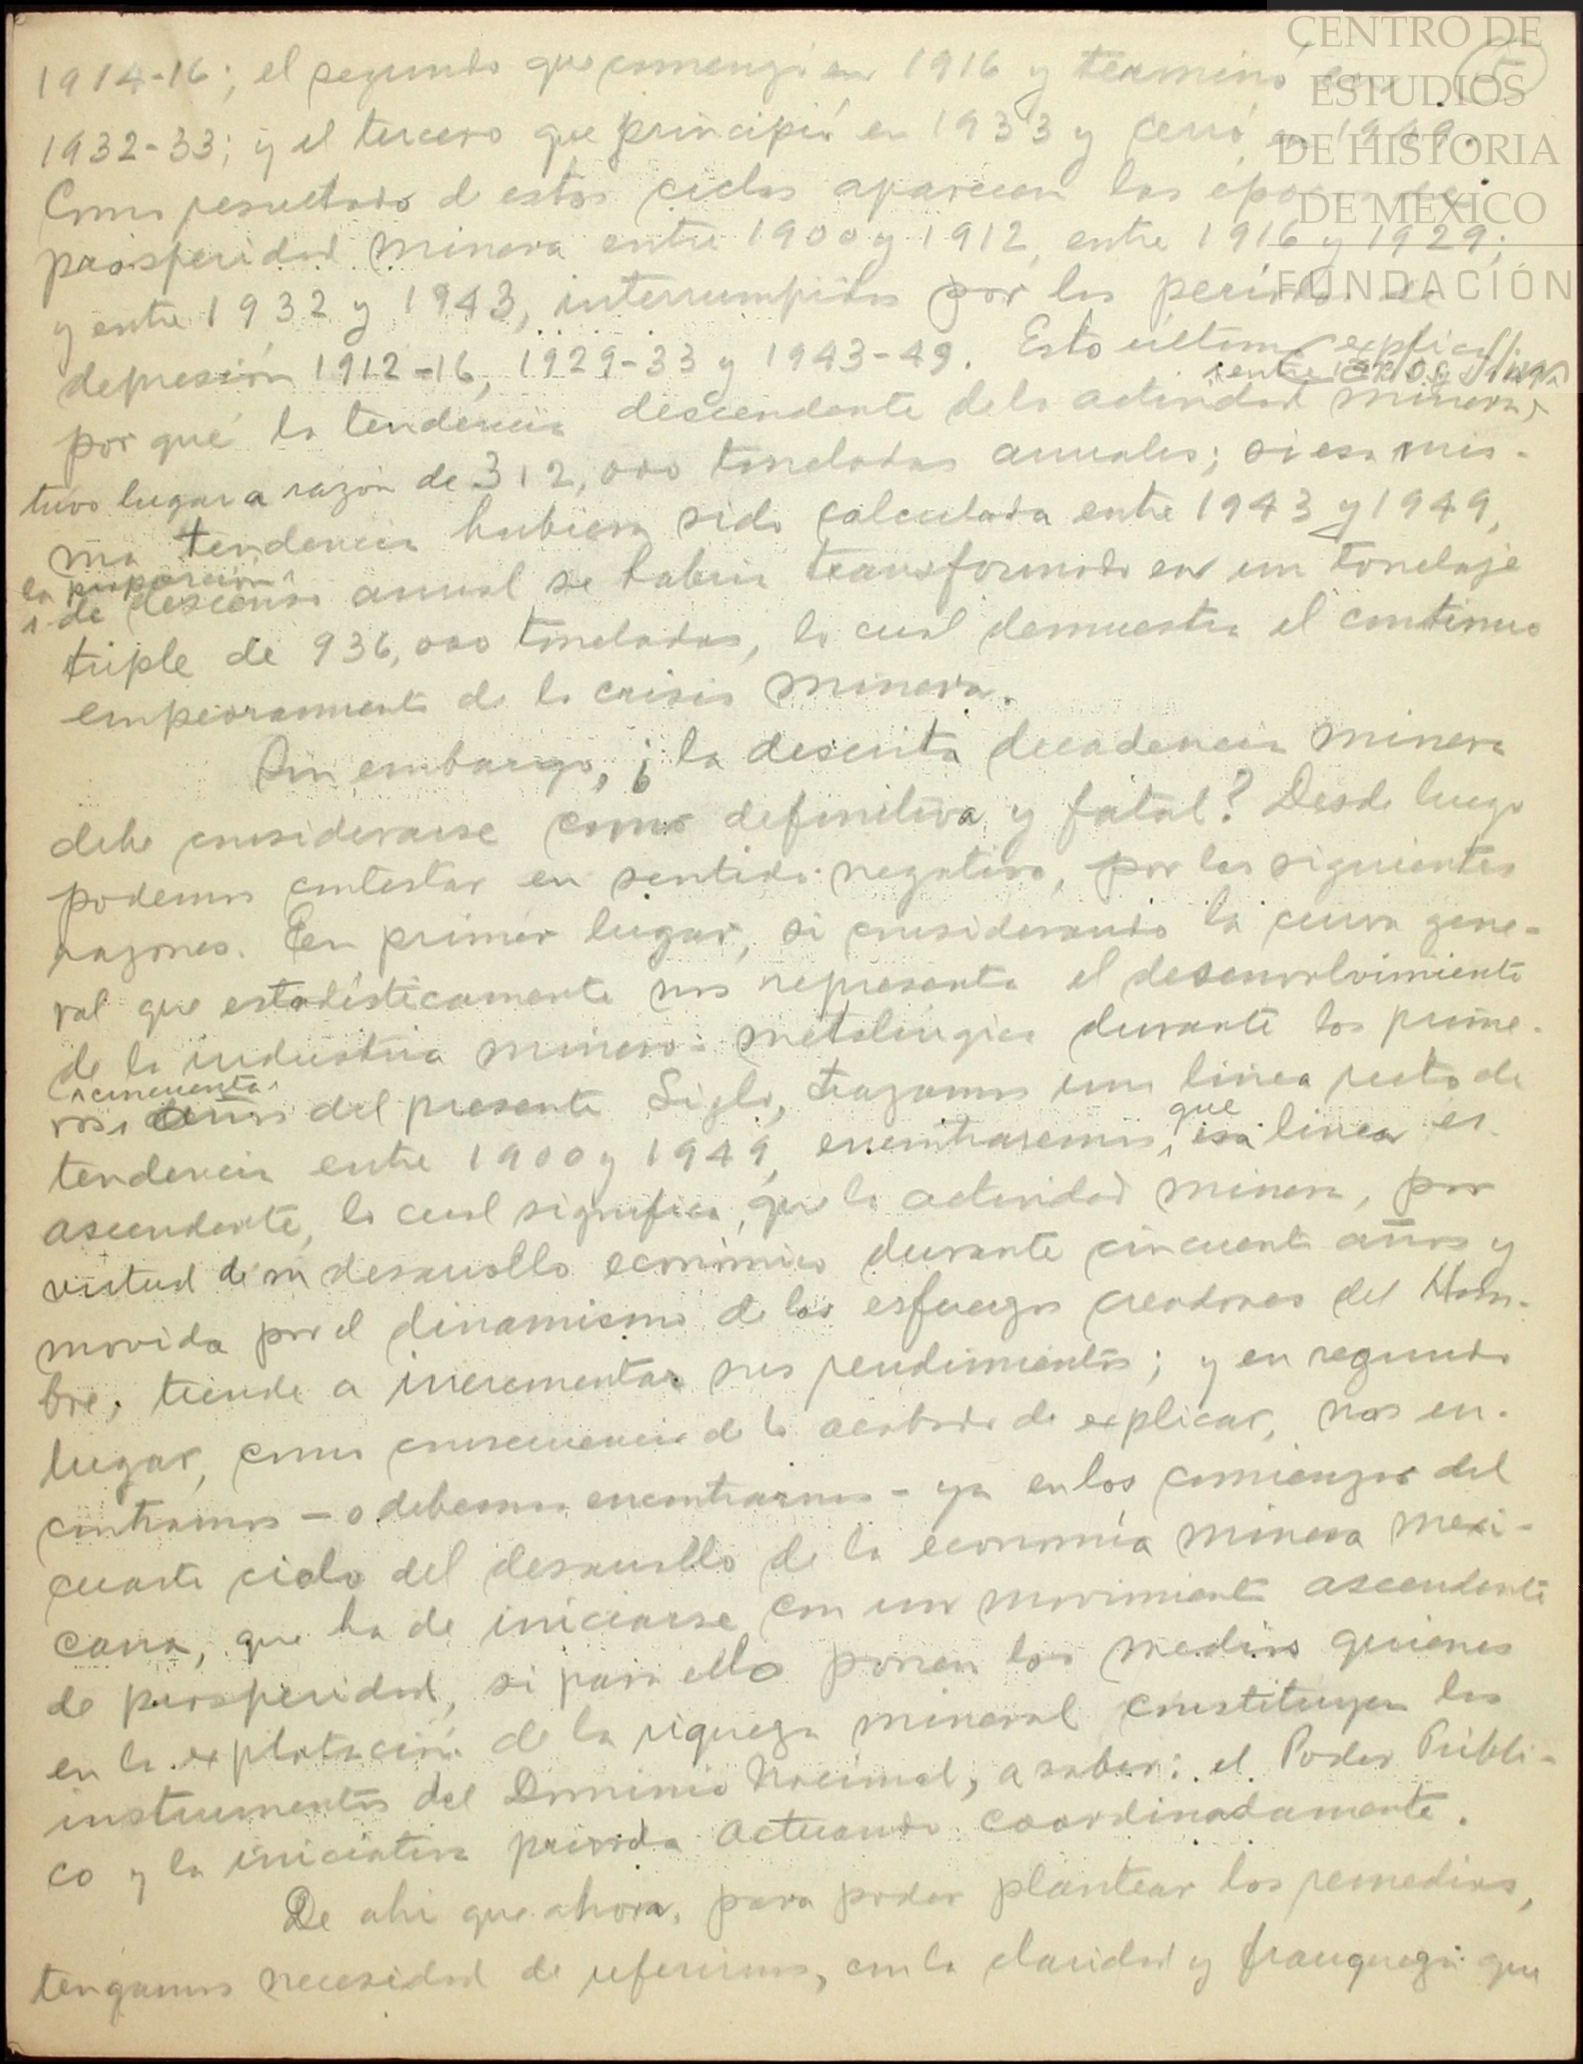 CENTRO DE
ESTUDIOS
DE HISTORIA
DE MÉXICO
FUNDACIÓN
5
1914-16; el segundo que comenzó en 1916 y terminó en
1932-33; y el tercero que principió en 1933 y cerró en 1949.
Como resultado d estos ciclos aparecen las épocas de
prosperidad minera entre 1900 y 1912, entre 1916 y 1929;
y entre 1932 y 1943, interrumpidas por los períodos de
depresión 1912-16, 1929-33 y 1943-49. Esto último explica
por qué la tendencia descendente de la actividad minera,
tuvo lugar a razón de 312,000 toneladas anuales; si esa mis-
ma tendencia hubiera sido calculada entre 1943 y 1949,
la proporción
de descenso anual se habría transformado en un tonelaje
triple de 936,000 toneladas, lo cual demuestra el continuo
empeoramiento de la crisis minera.
Sin embargo, ¿la descrita decadencia minera
debe considerarse como definitiva y fatal? Desde luego
podemos contestar en sentido negativo, por las siguientes
razones. En primer lugar, si considerando la curva gene-
ral que estadísticamente nos representa el desenvolvimiento
de la industria minero-metalúrgica durante los prime-
cincuenta
ros años del presente Siglo, trazamos una línea recta de
tendencia entre 1900 y 1949, encontraremos que esa línea es
ascendente, lo cual significa, que la actividad minera, por
virtud de su desarrollo económico durante cincuenta años y
movida por el dinamismo de los esfuerzos creadores del Hom-
bre, tiende a incrementar sus rendimientos; y en segundo
lugar, como consecuencia de lo acabado de explicar, nos en-
contramos - o debemos encontrarnos - ya en los comienzos del
cuarto ciclo del desarrollo de la economía minera mexi-
cana, que ha de iniciarse con un movimiento ascendente
de prosperidad, si para ello ponen los medios quienes
en la explotación de la riqueza mineral constituyen los
instrumentos del Dominio Nacional, a saber: el Poder Públi-
co y la iniciativa privada actuando coordinadamente.
De ahí que ahora, para poder plantear los remedios,
tengamos necesidad de referirnos, con la claridad y franqueza que